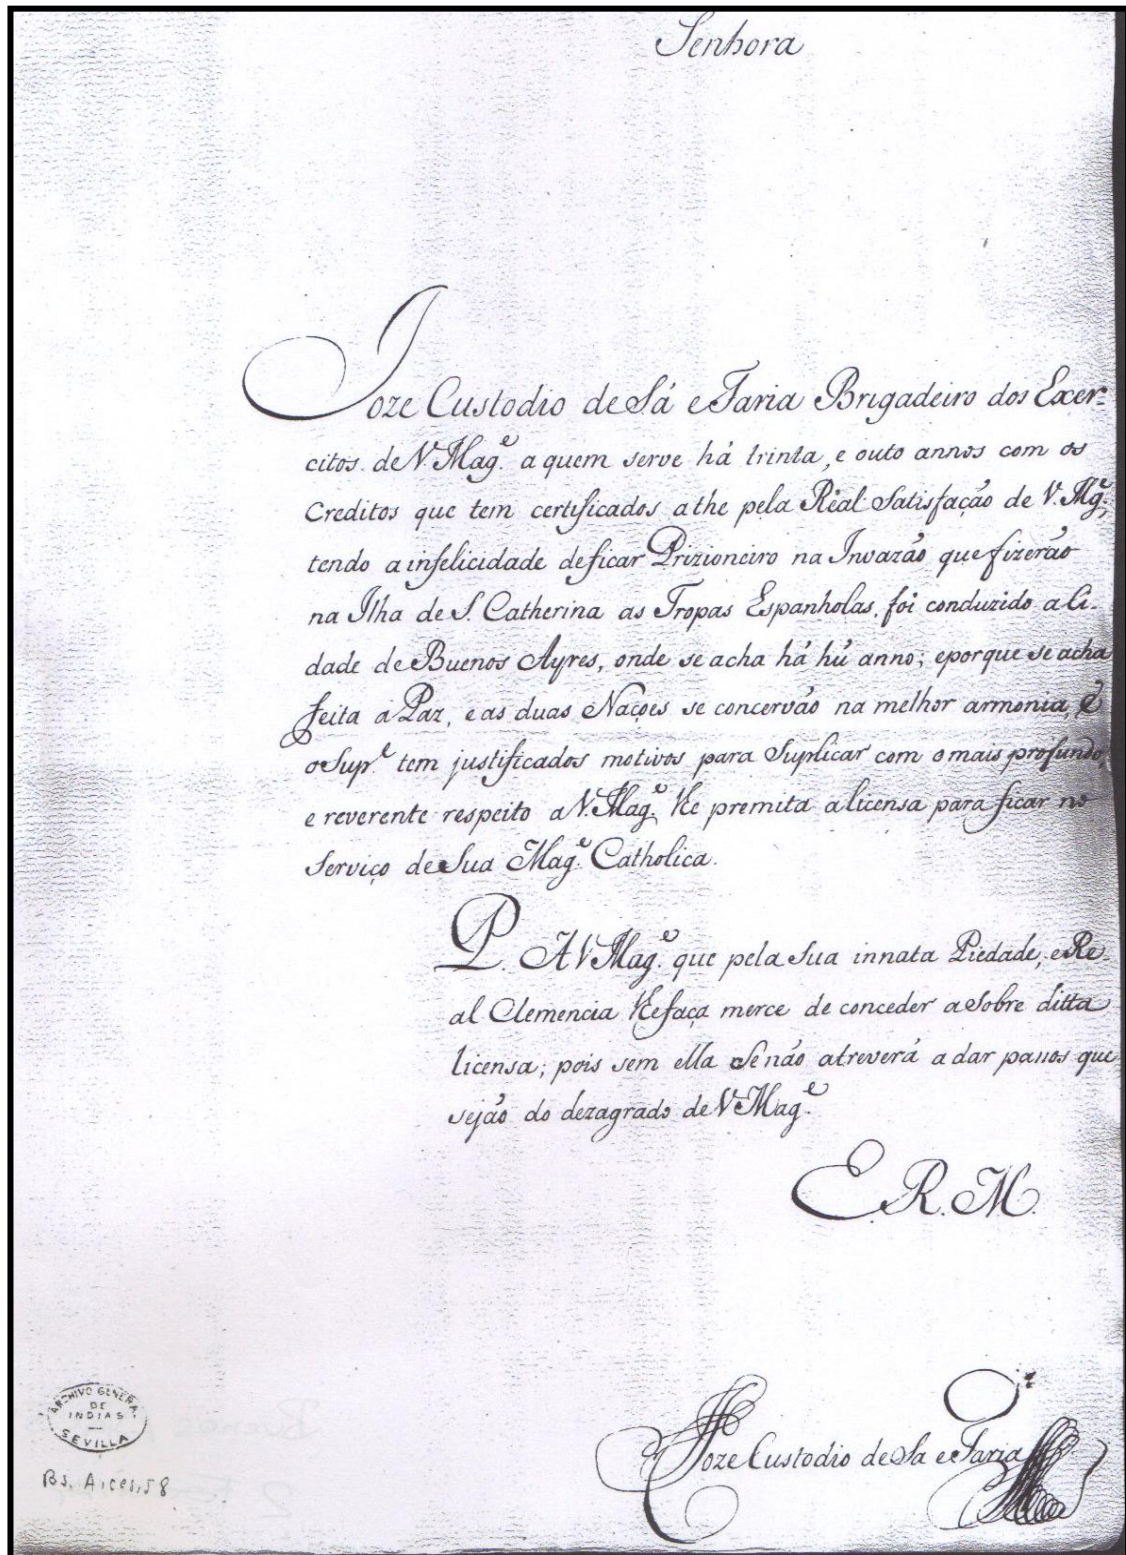 Senhora
Joze Custodio de Sá e Faria Brigadeiro dos Exer-
citos de V. Mag.e a quem serve há trinta, e outo annos com os
Creditos que tem certificados athe pela Rial Satisfação de V. Mg.e,
tendo a infelicidade de ficar Prizioneiro na Invazão que fizerão
na Ilha de S. Catherina as Tropas Espanholas, foi conduzido a Ci-
dade de Buenos Ayres, onde se acha há hũ anno; e porque se acha
feita a Paz, e as duas Naçoes se concervão na melhor armonia, e
o Sup.e tem justificados motivos para Suplicar com o mais profundo,
e reverente respeito a V. Mag.e lhe premita a licensa para ficar no
Serviço de Sua Mag.e Catholica.
P. A V Mag.e que pela Sua innata Piedade, e Re-
al Clemencia lhe faça merce de conceder a Sobre ditta
licensa; pois sem ella Se não atreverá a dar passos que
sejão do dezagrado de V Mag.e
E. R. M.
Joze Custodio de Sa e Faria
ARCHIVO GENERAL
DE
INDIAS
SEVILLA
Bs. Aires, 58